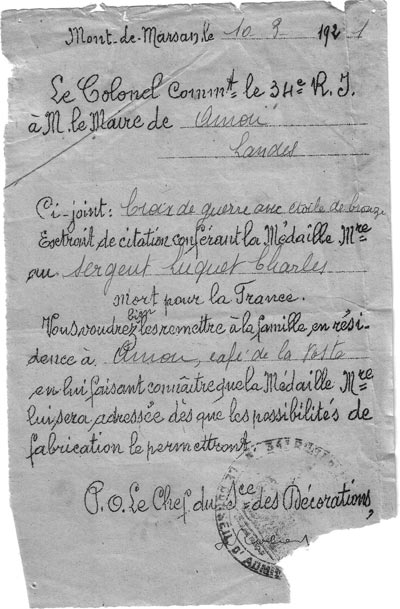 Mont-de-Marsan, le 10. 9. 1921
Le Colonel Commt le 34e R. I.
à M. le Maire de Amou
Landes
Ci-joint: Croix de guerre avec étoile de bronze
Extrait de citation conférant la Médaille Mre
au Sergent Luquet Charles
mort pour la France.
Vous voudrez bien les remettre à la famille, en rési-
dence à Amou, café de la Poste
en lui faisant connaître que la Médaille Mre
lui sera adressée dès que les possibilités de
fabrication le permettront.
P.O. Le Chef du Sce des Décorations,
34e
CONSEIL D'ADM